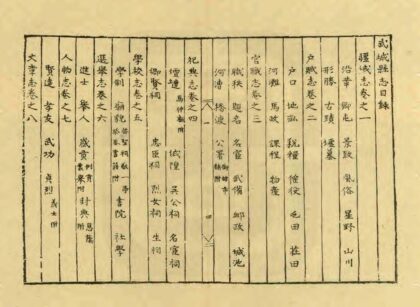 武城縣志目錄
疆域志卷之一
沿革 鄉屯 景致 風俗 星野 山川
形勝 古蹟 墟墓
户賦志卷之二
户口 地畝 稅糧 徭役 屯田 莊田
河灘 馬政 課程 物產
官職志卷之三
職秩 題名 名宦 武備 郵政 城池
河漕 橋渡 公署
祀典志卷之四
壇壝 城隍 吳公祠 名宦祠
鄉賢祠 忠臣祠 烈女祠 生祠
學校志卷之五
學制 廟貌 書院 社學
選舉志卷之六
進士 舉人 歲貢 封典 恩蔭
人物志卷之七
賢達 孝友 武功 貞烈 義士附
文章志卷之八